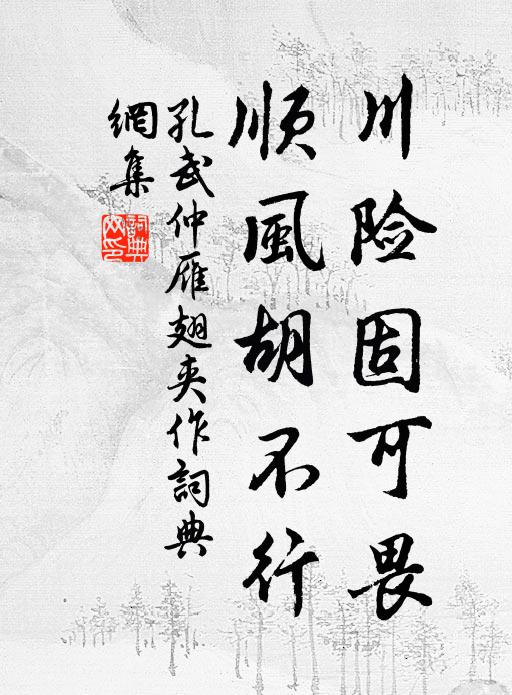 川险固可畏
順風胡不行
孔武仲雁翅夹作詞典
網集
詞典
网印